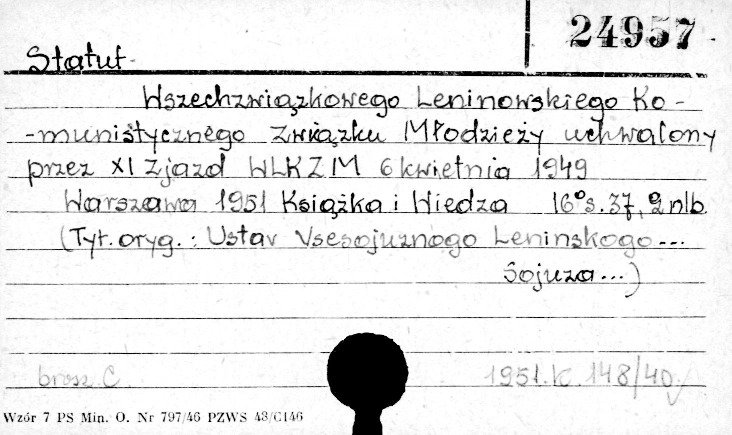 24957
Statut
Wszechzwiązkowego Leninowskiego Ko-
-munistycznego Związku Młodzieży uchwalony
przez XI Zjazd WLKZM 6 kwietnia 1949
Warszawa 1951 Książka i Wiedza 16° s. 37, 2 nlb.
(Tyt. oryg.: Ustav Vsesojuznogo Leninskogo...
Sojuza...)
brosz. C. 1951.K 148/40
Wzór 7 PS Min. O. Nr 797/46 PZWS 48/C146